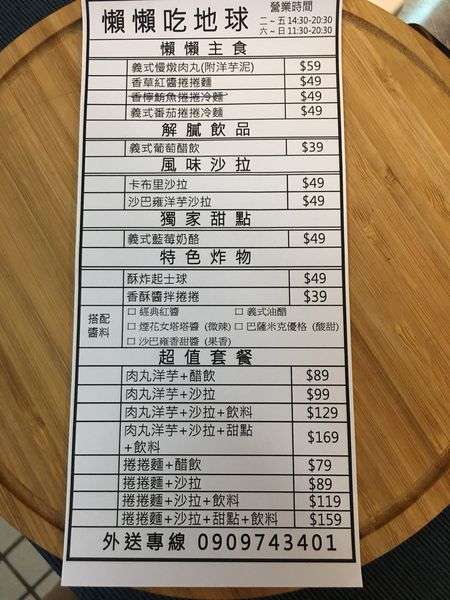 懶懶吃地球 營業時間
二~五 14:30-20:30
六~日 11:30-20:30
懶懶主食
義式慢燉肉丸(附洋芋泥) $59
香草紅醬捲捲麵 $49
香檸鮪魚捲捲冷麵 $49
義式番茄捲捲冷麵 $49
解膩飲品
義式葡萄醋飲 $39
風味沙拉
卡布里沙拉 $49
沙巴雍洋芋沙拉 $49
獨家甜點
義式藍莓奶酪 $49
特色炸物
酥炸起士球 $49
香酥醬拌捲捲 $39
搭配醬料
□ 經典紅醬 □ 義式油醋
□ 煙花女塔塔醬 (微辣) □ 巴薩米克優格 (酸甜)
□ 沙巴雍香甜醬 (果香)
超值套餐
肉丸洋芋+醋飲 $89
肉丸洋芋+沙拉 $99
肉丸洋芋+沙拉+飲料 $129
肉丸洋芋+沙拉+甜點
+飲料 $169
捲捲麵+醋飲 $79
捲捲麵+沙拉 $89
捲捲麵+沙拉+飲料 $119
捲捲麵+沙拉+甜點+飲料 $159
外送專線 0909743401